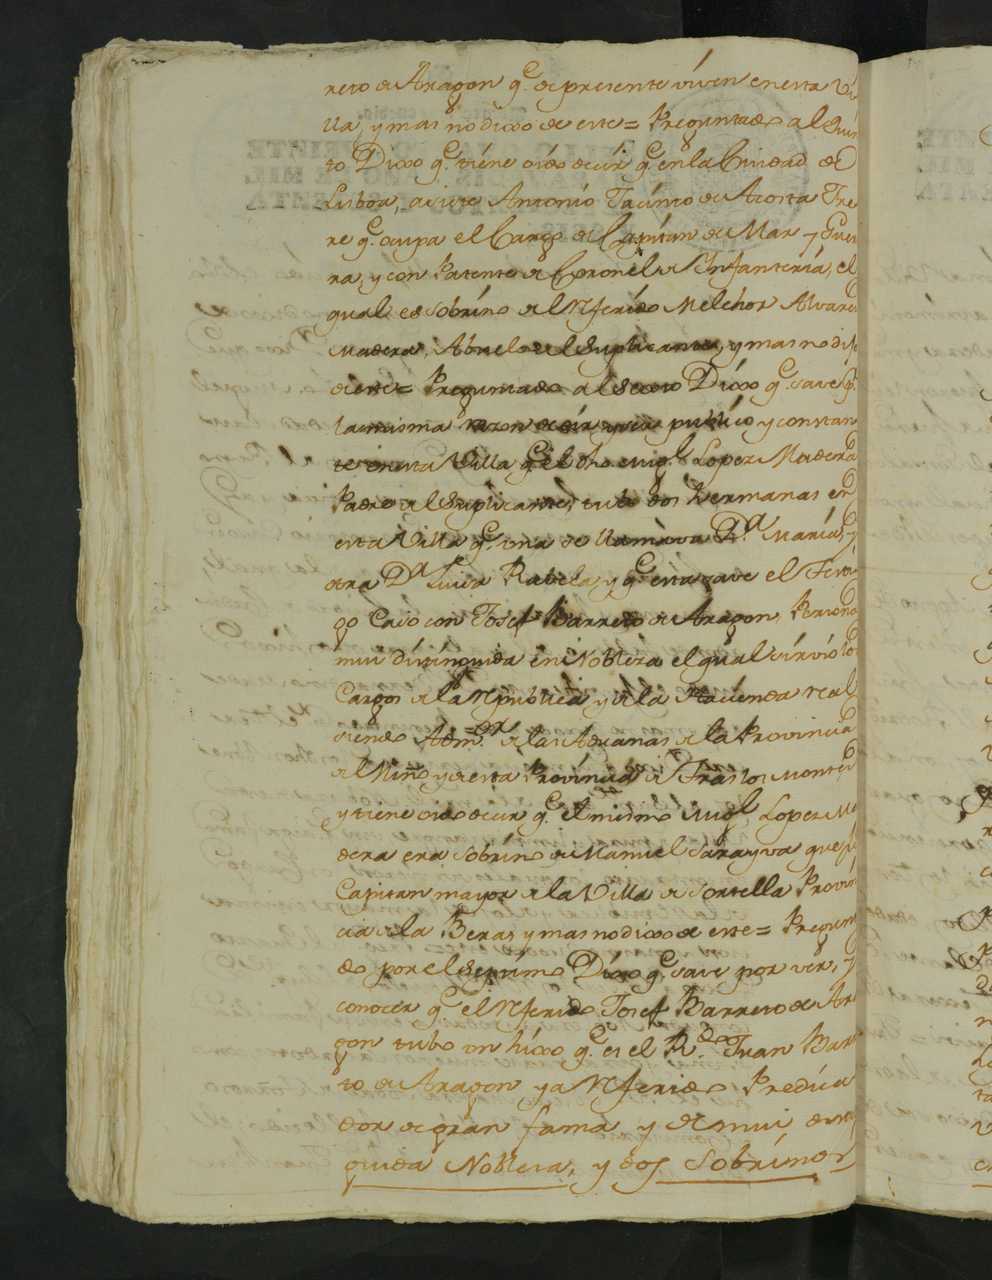 reto de Aragon q.e de presente viven en esta Vi
lla, y mas no dixo de este = Preguntado al Quin
to Dixo q.e tiene oido decir q.e en la Ciudad de
Lisboa, asiste Antonio Jacinto de Acosta Fre
re q.e ocupa el Cargo de Capitan de Mar y Guer
ra, y con Patente de Coronel de Infanteria, el
qual es sobrino del Referido Melchor Alvares
Madera, Abuelo del Suplicante, y mas no dijo
de este = Preguntado al Sexto Dixo q.e save p.r
la misma razon de oir y ser publico y constan
te en esta Villa q.e el dho Mig.l Lopez Madera
Padre del Suplicante, tubo dos hermanas en
esta Villa q.e una se llamava D.a Maria, y
otra D.a Luisa Rabela, y q.e esta save el Testi
go Casó con Josef Barreto de Aragon, Persona
mui distinguida en Nobleza el qual sirvió los
Cargos de la Republica, y de la Hacienda real
siendo Adm.or de las Aduanas de la Provincia
del Miño y de esta Provincia de Traslos Montes
y tiene oido decir q.e el mismo Mig.l Lopez Ma
dera era sobrino de Manuel Sarayva que fue
Capitan mayor de la Villa de Sortella Provin
cia de la Beras y mas no dixo de este = Pregunta
do por el Septimo Dixo q.e save por ver, y
conocer q.e el Referido Josef Barreto de Ara
gon tubo un hixo q.e es el R.do Juan Barre
to de Aragon ya Referido Predica
dor de gran fama y de mui distin
guida Nobleza, y dos Sobrinos